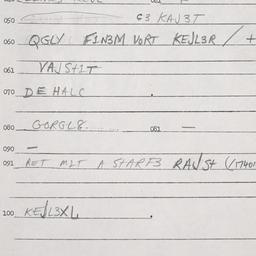 050 C3 KAJ3T
060 QGLY F1N3M VORT KEJL3R / +
061 VAJSt1T
070 DE HALC .
080 GORGL8. 081 —
090 —
091 A STARF3 RAJSt (17401
100 KEJL3XL .